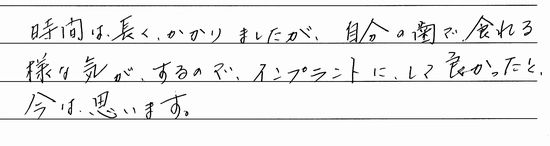 時間は、長く、かかりましたが、自分の歯で、食れる
様な気が、するので、インプラントに、して良かったと、
今は、思います。